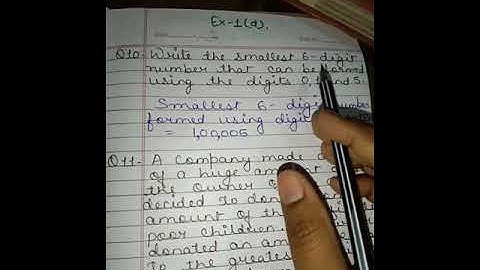 Ex-1(d).
Q10- Write the smallest 6-digit
number that can be formed
using the digits 0, 1 and 5.
Smallest 6- digit number
formed using digit
= 1,00,005
Q11- A Company made a
of a huge amount
the owner
decided to
amount of the
poor children
donated an am
is the greates